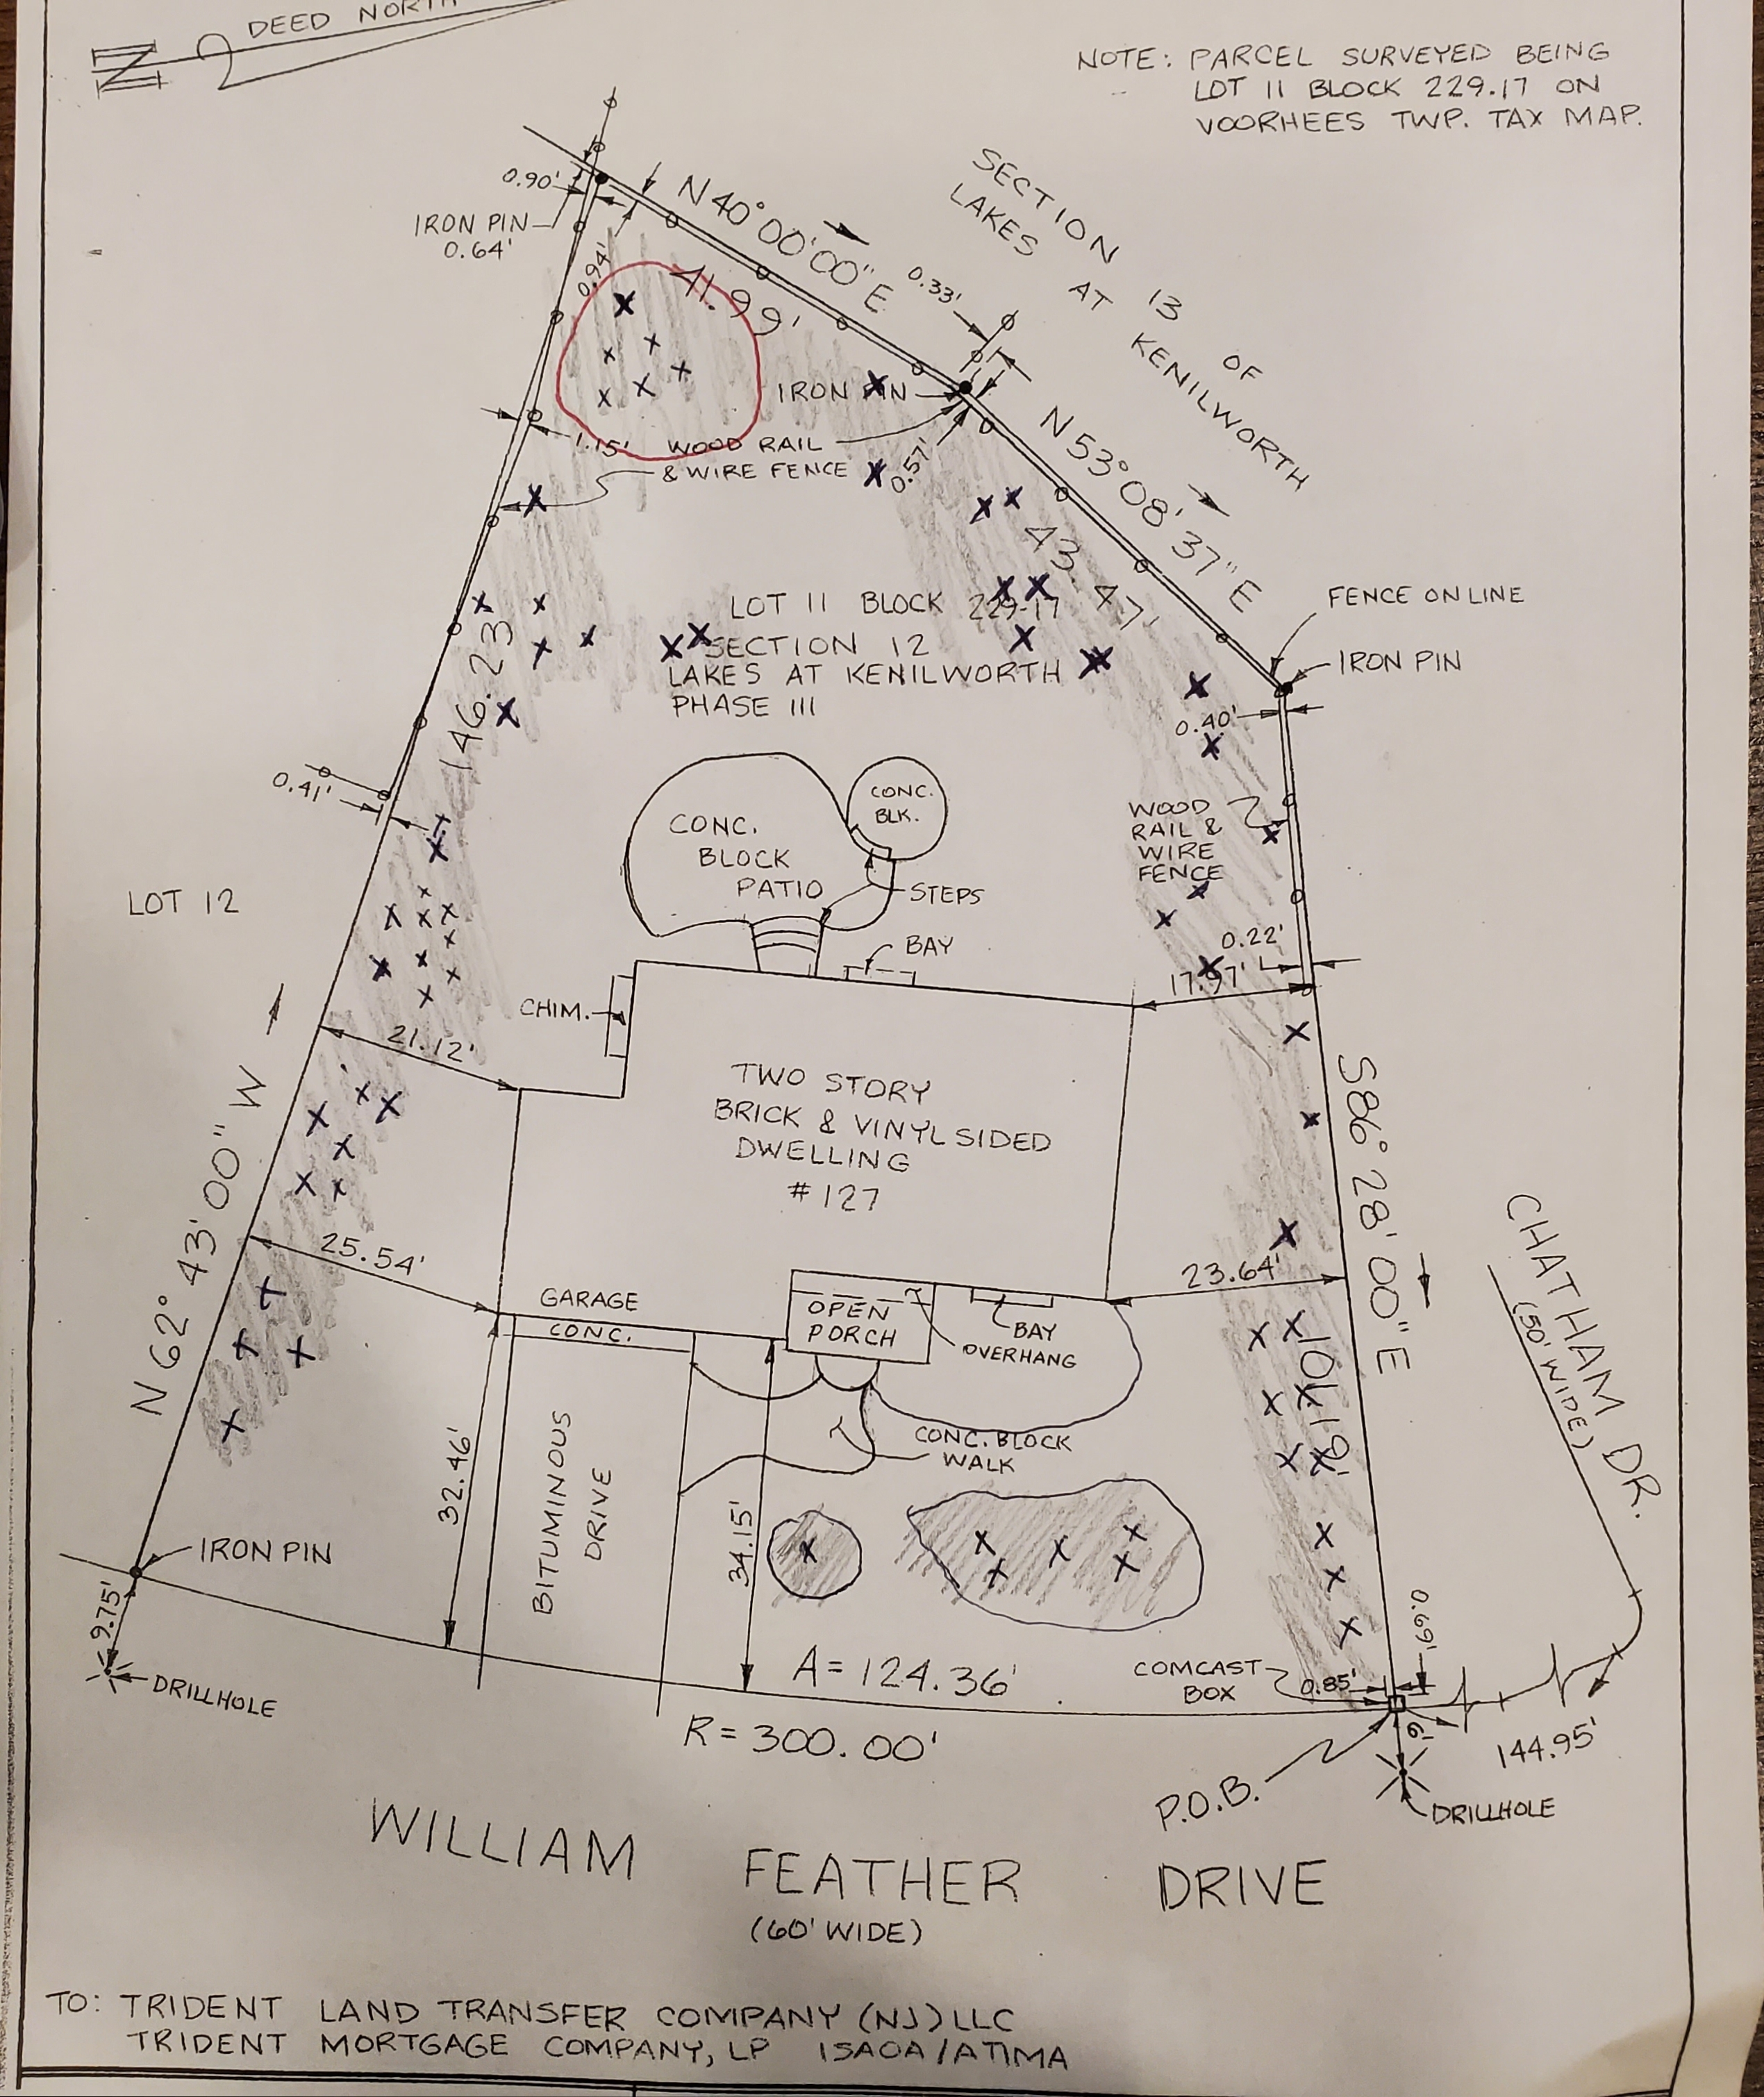 DEED NORTH
N
NOTE: PARCEL SURVEYED BEING
LOT 11 BLOCK 229.17 ON
VOORHEES TWP. TAX MAP.
SECTION 13 OF
LAKES AT KENILWORTH
0.90'
IRON PIN
0.64'
0.94'
N 40° 00' 00" E
41.99'
0.33'
IRON PIN
1.15'
WOOD RAIL
& WIRE FENCE
0.57'
N 53° 08' 37" E
43.47'
FENCE ON LINE
IRON PIN
LOT 11 BLOCK 229.17
SECTION 12
LAKES AT KENILWORTH
PHASE III
146.23'
0.40'
0.41'
CONC.
BLOCK
PATIO
CONC.
BLK.
STEPS
WOOD
RAIL &
WIRE
FENCE
LOT 12
BAY
0.22'
17.97'
CHIM.
21.12'
TWO STORY
BRICK & VINYL SIDED
DWELLING
# 127
N 62° 43' 00" W
S 86° 28' 00" E
101.19'
CHATHAM DR.
(50' WIDE)
25.54'
23.64'
GARAGE
CONC.
OPEN
PORCH
BAY
OVERHANG
32.46'
BITUMINOUS
DRIVE
34.15'
CONC. BLOCK
WALK
IRON PIN
9.75'
DRILLHOLE
A = 124.36'
R = 300.00'
COMCAST
BOX
0.85'
0.69'
144.95'
P.O.B.
DRILLHOLE
WILLIAM FEATHER DRIVE
(60' WIDE)
TO: TRIDENT LAND TRANSFER COMPANY (NJ) LLC
TRIDENT MORTGAGE COMPANY, LP ISAOA/ATIMA